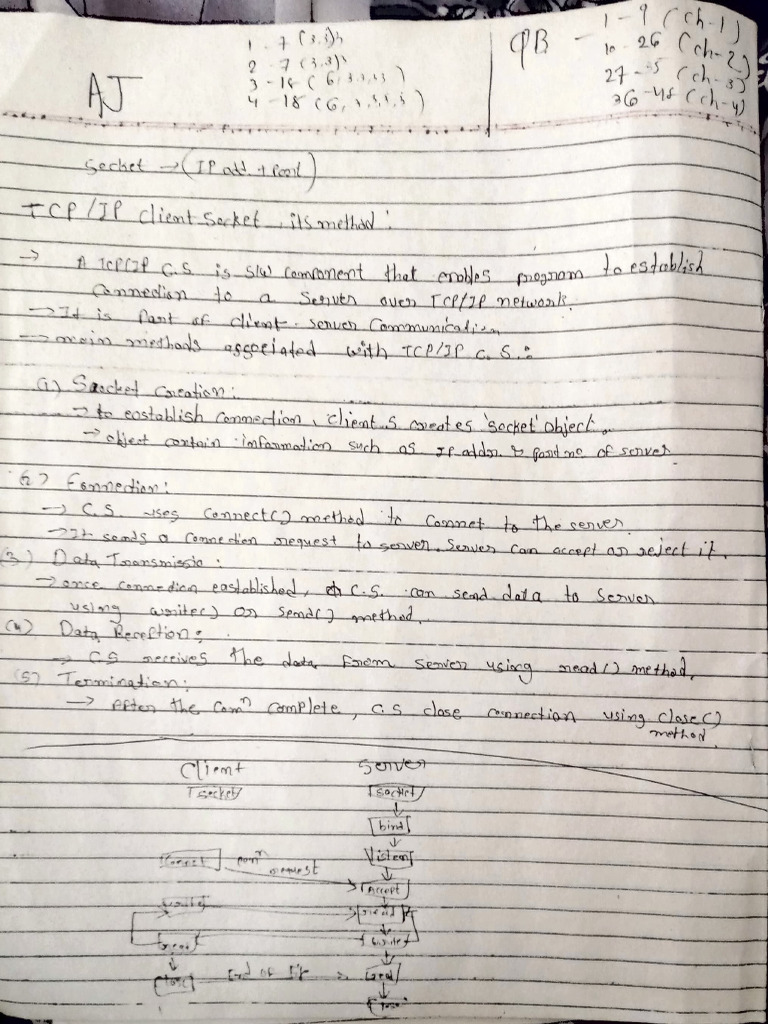 AJ
1 - 7 (3,3)
2 - 7 (3,3)
3 - 18 (6,
4 - 18 (6,
QB - 1 - 9 (ch-1)
10 - 26 (ch-2)
27 - (ch-3)
36 - 48 (ch-4)
Socket → (IP add + Port)
TCP/IP client Socket, its method:
→ A TCP/IP C.S is S/W Component that enables program to establish
Connection to a Server over TCP/IP network.
→ It is Part of client-server Communication
→ main methods associated with TCP/IP C.S.:
Socket Creation:
→ to eastablish connection, client s creates 'socket' Object.
→ object contain information such as IP addr. & port no of server
Connection:
→ C.S. uses Connect() method to Connet to the server
→ It sends a Connection request to server. Server can accept or reject it.
(3) Data Transmissio :
→ once connection eastablished, C.S. can send data to Server
using write() or send() method.
(4) Data Reception:
→ CS receives the data From server using read() method.
(5) Termination:
→ After the Comⁿ complete, C.S close connection using close()
method.
Client Server
Socket Socket
bind
listen
Connect conⁿ request
Accept
write read
read write
close End of read
close